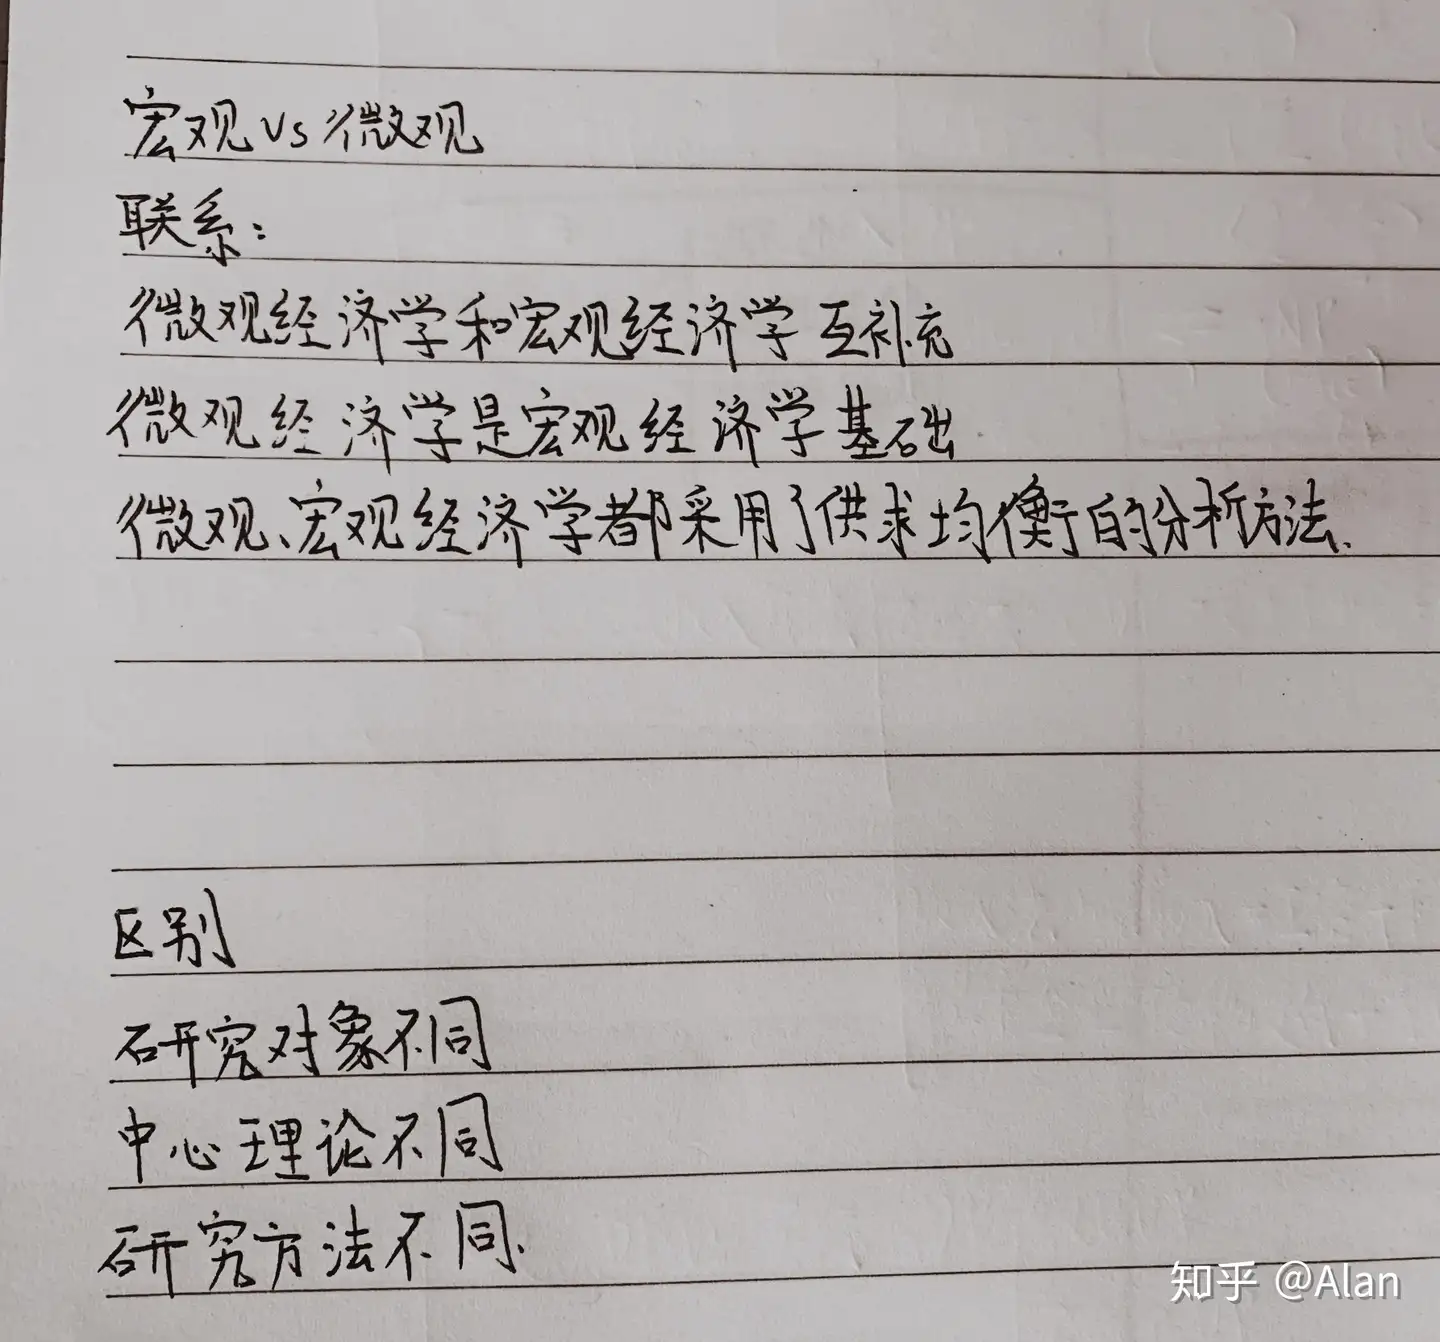 宏观vs微观
联系：
微观经济学和宏观经济学互补充
微观经济学是宏观经济学基础
微观、宏观经济学都采用了供求均衡的分析方法、
区别
研究对象不同
中心理论不同
研究方法不同、
知乎 @Alan